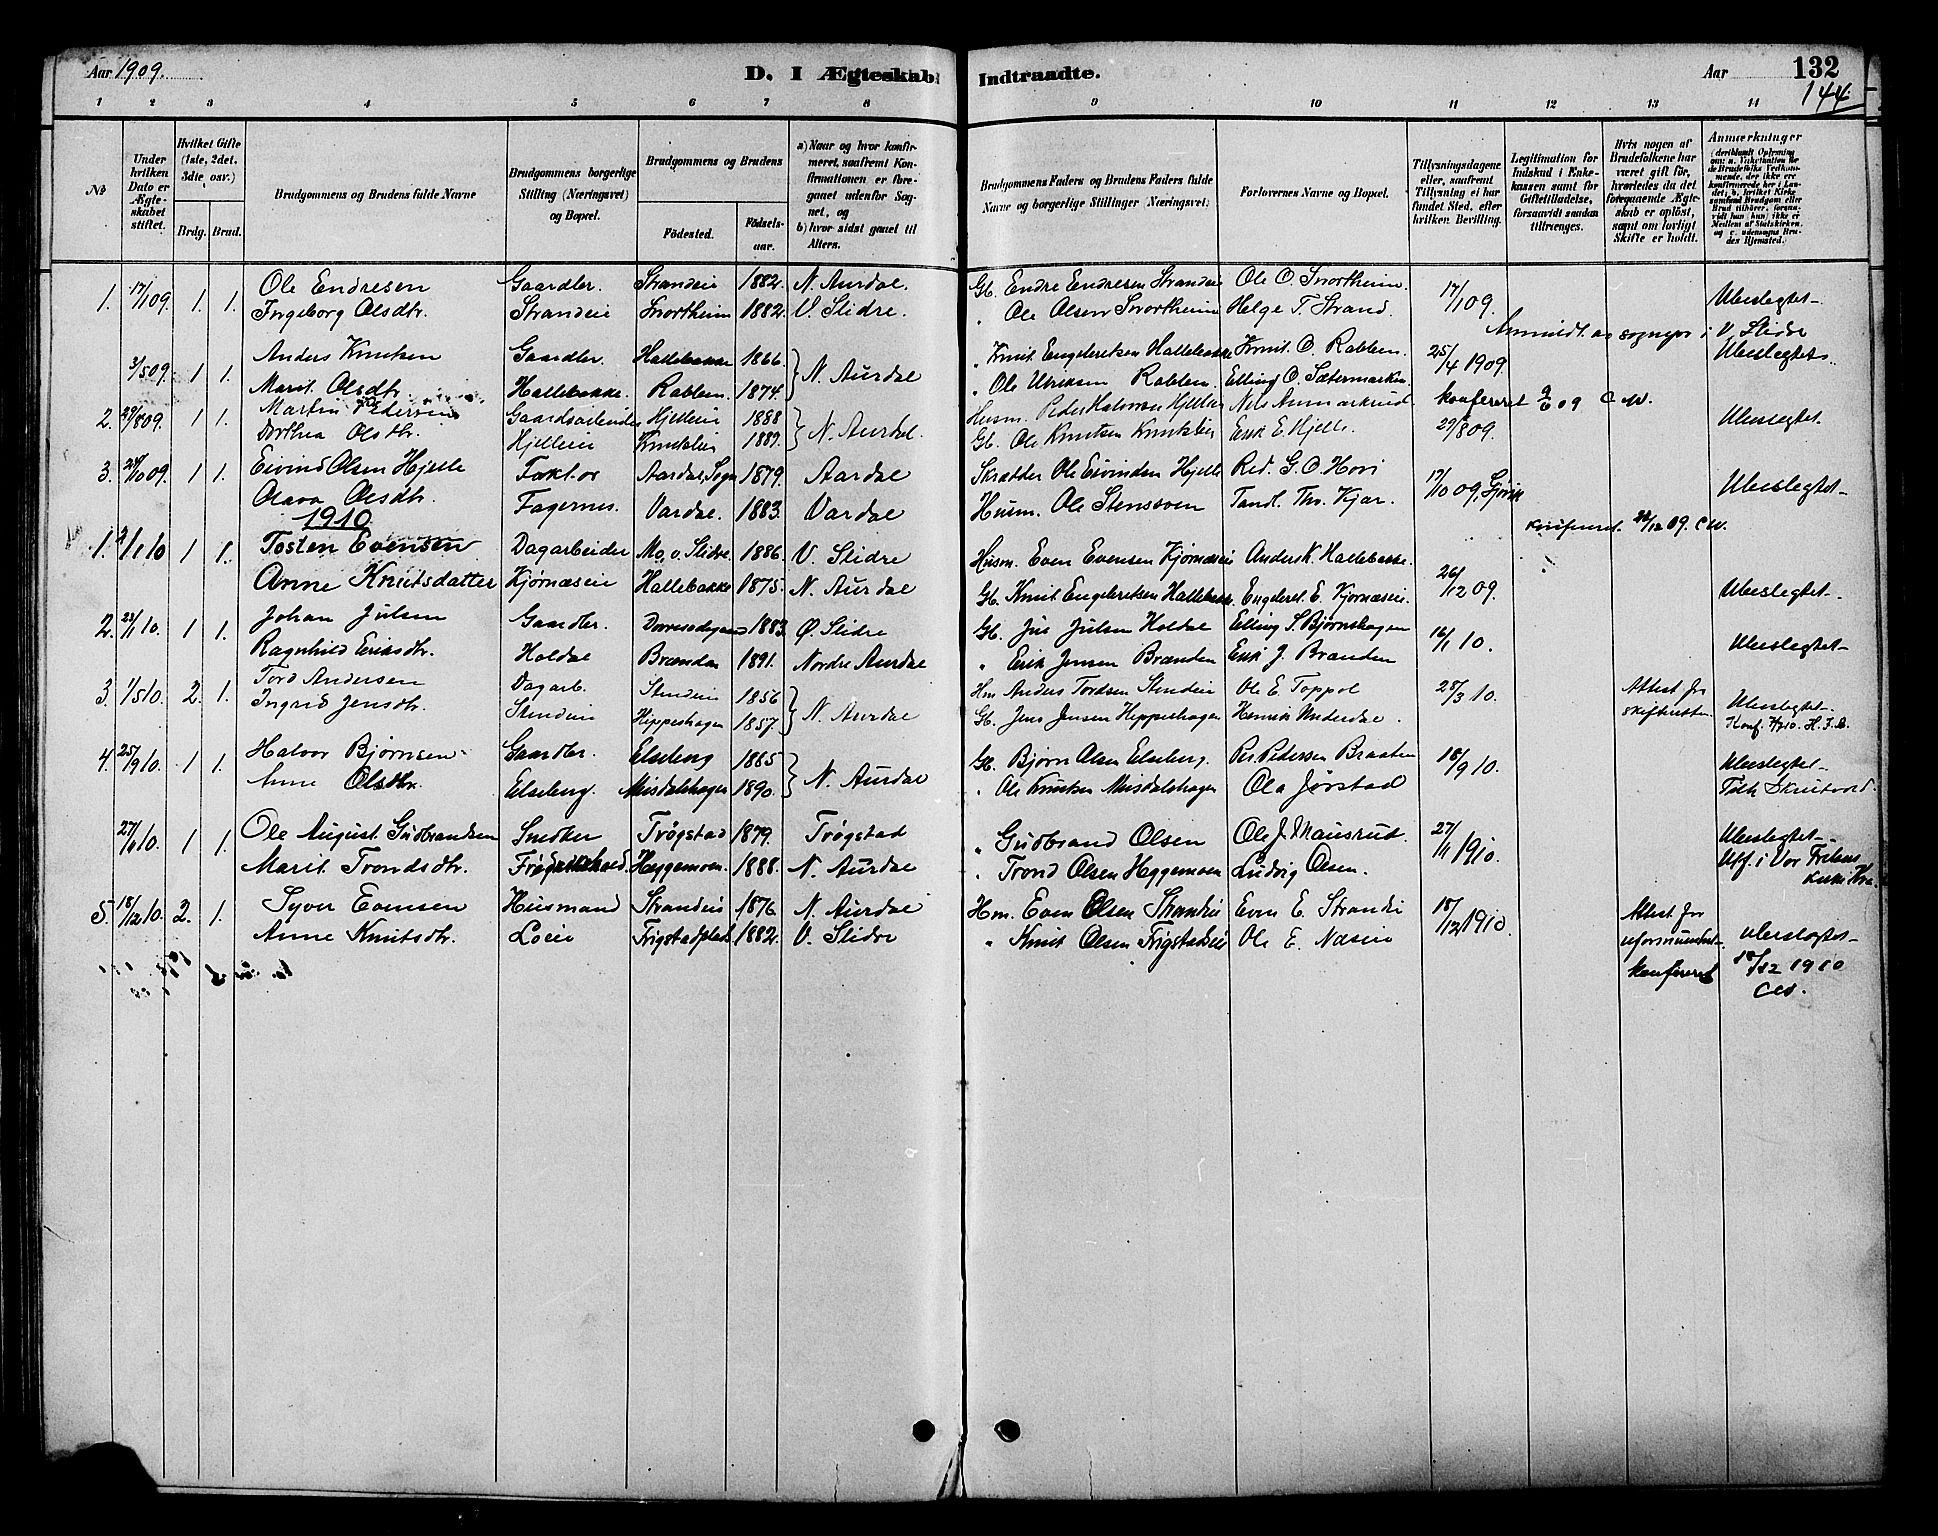 Aar 1909.
D. I Ægteskab
Indtraadte.
Aar
132
144
1 2 3 4 5 6 7 8 9 10 11 12 13 14
No
Under hvilken Dato er Ægteskabet stiftet.
Hvilket Gifte (1ste, 2det, 3dte, osv.)
Brdg. Brud.
Brudgommens og Brudens fulde Navne
Brudgommens borgerlige Stilling (Næringsvei) og Bopæl.
Brudgommens og Brudens
Födested.
Födselsaar.
a) Naar og hvor konfirmeret, saafremt Konfirmationen er foregaaet udenfor Sognet, og
b) hvor sidst gaaet til Alters.
Brudgommens Faders og Brudens Faders fulde Navne og borgerlige Stillinger (Næringsvei)
Forlovernes Navne og Bopæl.
Tillysningsdagene eller, saafremt Tillysning ei har fundet Sted, efter hvilken Bevilling.
Legitimation for Indskud i Enkekassen samt for Giftetilladelse, forsaavidt saadan tiltrænges.
Hvis nogen af Brudefolkene har været gift før, hvorledes da det foregaaende Ægteskab er oplöst, samt om lovligt Skifte er holdt.
Anmærkninger
1. 17/1 09. 1. 1. Ole Endresen Gaardbr. Strandeie 1882. N. Aurdal. Gb. Endre Endresen Strandeie Ole O. Snortheim. 17/1 09. Ubeslegtet
Ingeborg Olsdtr. Strandeie Snortheim 1882. V. Slidre. " Ole Olsen Snortheim Helge T. Strand.
Anmeldt av sognepr i V. Slidre
3/5 09. 1 1. Anders Knutsen Gaardbr. Hallebakke 1866 N. Aurdal " Knut Engebretsen Hallebakke Knut O. Rabben. 25/4 1909 Ubeslegtet.
Marit Olsdtr. Hallebakke. Rabben. 1874. " Ole Ulriksen Rabben. Elling O. Sætermarken
konfereret 9/6 09 C W.
2. 29/8 09. 1 1. Martin Pedersen Gaardsarbeider Hjelleie 1888 N. Aurdal. Husm. Peder Halvorsen Hjelleie Nils Aamarkrud 29/8 09. Ubeslegtet
Dorthea Olsdtr. Hjelleie Knutslie 1887. Gb. Ole Knutsen Knutslie Erik E. Hjelle.
3. 24/10 09. 1 1. Eivind Olsen Hjelle Faktor Aardal, Sogn 1879. Aardal Skrædder Ole Eivindsen Hjelle Red. G. O. Hovi 17/10 09. Gjøvik Ubeslegtet
Olava Olsdtr. Fagernes. Vardal. 1883. Vardal Husm. Ole Stensveen Tandl. Ths. Kjær.
1910.
Konfereret. 24/12 09. C W.
1. 9/1 10 1 1. Tosten Evensen Dagarbeider Mo, v. Slidre. 1886. V. Slidre Husm. Even Evensen Kjørnæseie Anders K. Hallebakke. 26/12 09. Ubeslegtet
Anne Knutsdatter Kjørnæseie Hallebakke 1875. N. Aurdal Gb. Knut Engebretsen Hallebakke. Engebret. E. Kjørnæseie.
2. 23/1 10. 1 1. Johan Julsen Gaardbr. 1883. Ø. Slidre Gb. Jul Julsen Holdal Elling S. Bjørnshagen 16/1 10. Ubeslegtet
Ragnhild Eriksdtr. Holdal Brænden 1891. Nordre Aurdal " Erik Jensen Brænden Erik J. Brænden
3. 1/5 10. 2. 1. Tord Andersen Dagarb. Stendeie 1856 N. Aurdal Hm Anders Tordsen Stendeie Ole E. Toppol 28/3 10. Attest fr skifteretten Ubeslegtet.
Ingrid Jensdtr. Stendeie Hippeshagen 1857. Gb. Jens Jensen Hippeshagen Henrik Underdal. Konf. H.J.B.
4. 25/9 10. 1 1. Halvor Bjørnsen Gaardbr. Elseberg 1885 N. Aurdal Gb. Bjørn Olsen Elseberg. Per Pedersen Braaten 18/9 10. Ubeslegtet
Anne Olsdtr. Elseberg. Misdalshagen 1890. " Ole Knutsen Misdalshagen Ola Jørstad Tilh Skrutvold
27/11 10. 1 1. Ole August Gudbrandsen Snedker Trøgstad 1879. Trøgstad " Gudbrand Olsen Ole J. Mausrud. 27/11 1910. Ubeslegtet
Marit Trondsdtr. Heggemoen. 1888. N. Aurdal " Trond Olsen Heggemoen Ludvig Olsen. Utf. i Vor Frelsers Kirke Kra.
5. 18/12 10. 2. 1. Syver Evensen Husmand Strandeie 1876 N. Aurdal Hm. Even Olsen Strandeie Even E. Strandei 18/12 1910. Attest fr Ubeslegtet
Anne Knutsdtr. Loeie Frigstadplads 1882. V. Slidre " Knut Olsen Frigstadeie Ole E. Næseie
konfereret 18/12 1910
CW.